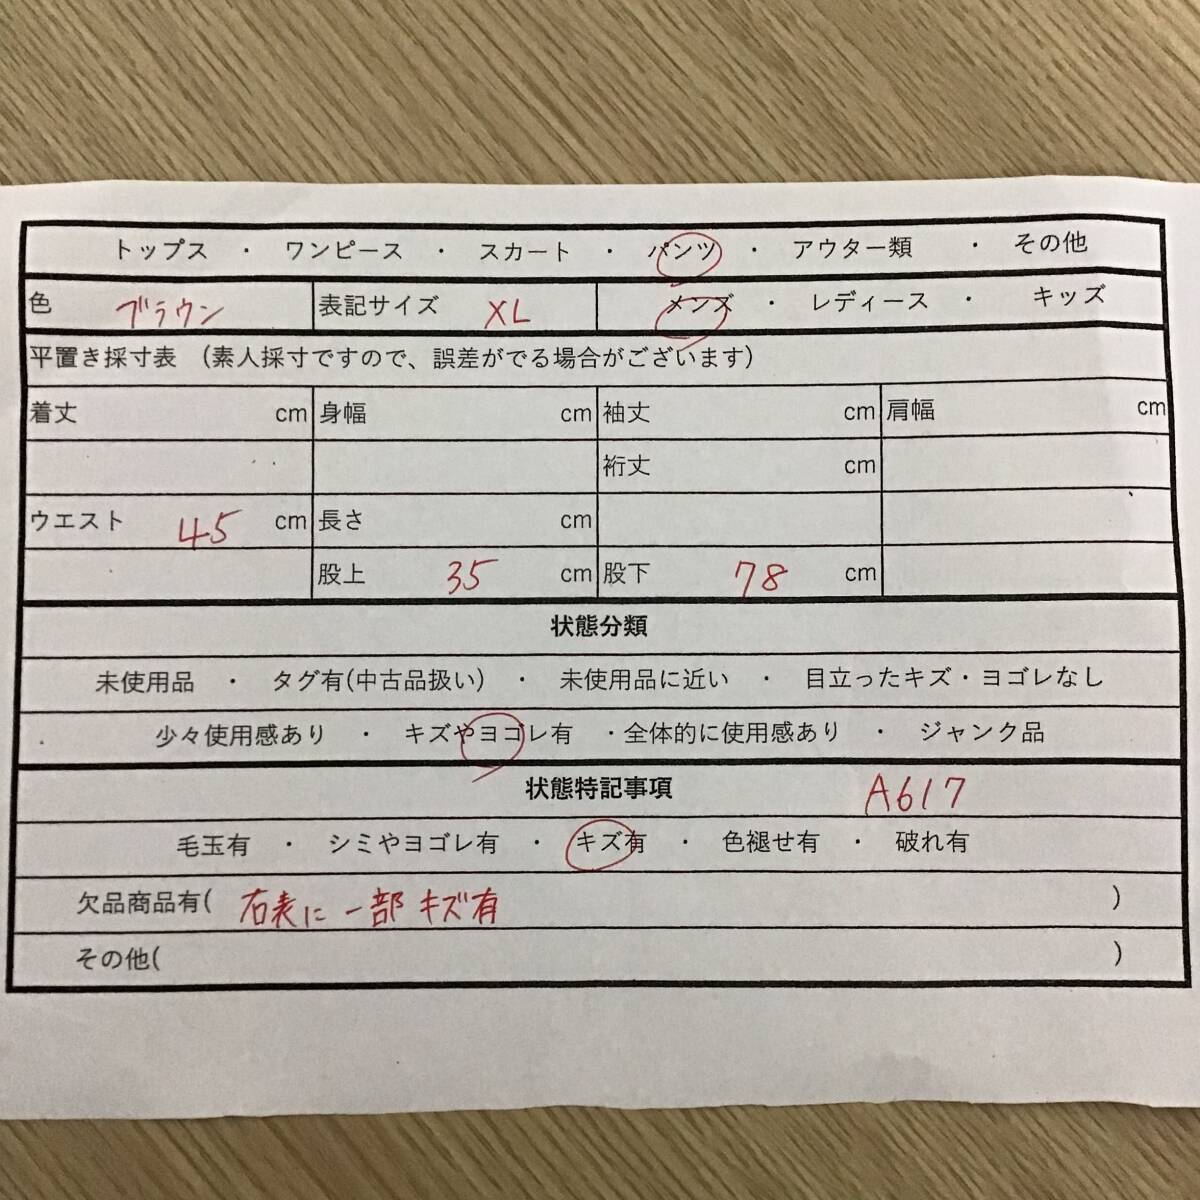 トップス ・ ワンピース ・ スカート ・ パンツ ・ アウター類 ・ その他
色 ブラウン 表記サイズ XL メンズ ・ レディース ・ キッズ
平置き採寸表 (素人採寸ですので、誤差がでる場合がございます)
着丈 cm 身幅 cm 袖丈 cm 肩幅 cm
裄丈 cm
ウエスト 45 cm 長さ cm
股上 35 cm 股下 78 cm
状態分類
未使用品 ・ タグ有(中古品扱い) ・ 未使用品に近い ・ 目立ったキズ・ヨゴレなし
少々使用感あり ・ キズやヨゴレ有 ・全体的に使用感あり ・ ジャンク品
状態特記事項 A617
毛玉有 ・ シミやヨゴレ有 ・ キズ有 ・ 色褪せ有 ・ 破れ有
欠品商品有( 右表に一部キズ有 )
その他( )